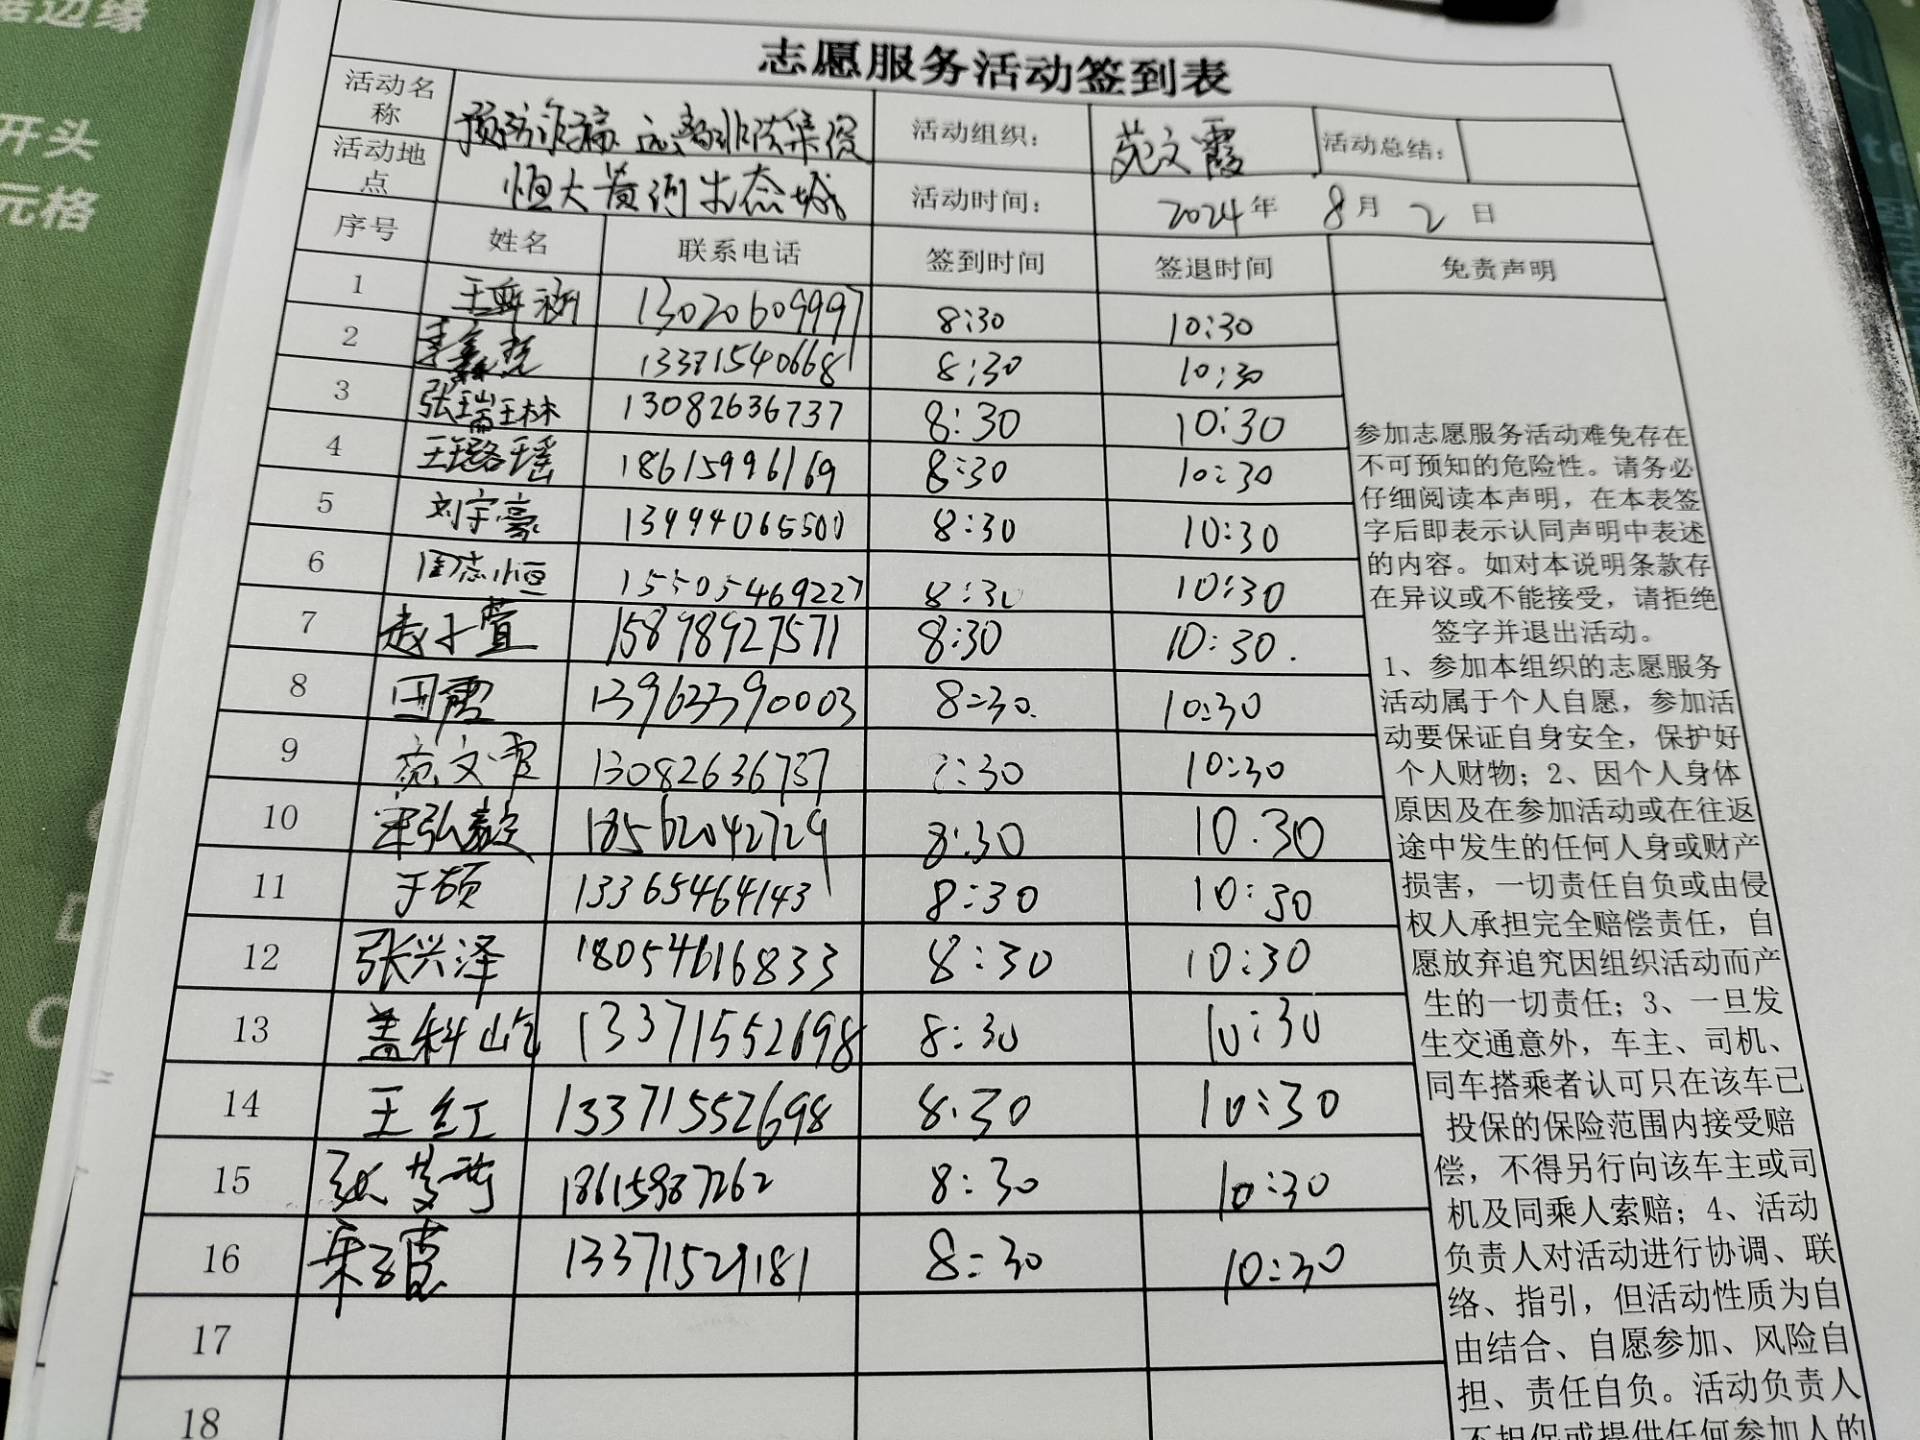 居边缘
开头
元格
志愿服务活动签到表
活动名称 预防诈骗 远离非法集资 活动组织： 苑文霞 活动总结：
活动地点 恒大黄河生态城 活动时间： 2024年 8月 2日
序号 姓名 联系电话 签到时间 签退时间 免责声明
1 13020609997 8:30 10:30
2 13371540668 8:30 10:30
3 张瑞琳 13082636737 8:30 10:30
4 王璐瑶 18615996169 8:30 10:30
5 刘宇豪 13994065500 8:30 10:30
6 周志恒 15505469227 8:30 10:30
7 赵子萱 15898927571 8:30 10:30.
8 田霞 13963390003 8:30. 10:30
9 苑文霞 13082636737 8:30 10:30
10 弘毅 18562042729 8:30 10.30
11 于硕 13365464143 8:30 10:30
12 张兴泽 18054616833 8:30 10:30
13 盖科屹 13371552698 8:30 10:30
14 王红 13371552698 8.30 10:30
15 张梦 18615987262 8:30 10:30
16 13371529181 8:30 10:30
17
18
参加志愿服务活动难免存在
不可预知的危险性。请务必
仔细阅读本声明，在本表签
字后即表示认同声明中表述
的内容。如对本说明条款存
在异议或不能接受，请拒绝
签字并退出活动。
1、参加本组织的志愿服务
活动属于个人自愿，参加活
动要保证自身安全，保护好
个人财物；2、因个人身体
原因及在参加活动或在往返
途中发生的任何人身或财产
损害，一切责任自负或由侵
权人承担完全赔偿责任，自
愿放弃追究因组织活动而产
生的一切责任；3、一旦发
生交通意外，车主、司机、
同车搭乘者认可只在该车已
投保的保险范围内接受赔
偿，不得另行向该车主或司
机及同乘人索赔；4、活动
负责人对活动进行协调、联
络、指引，但活动性质为自
由结合、自愿参加、风险自
担、责任自负。活动负责人
不担保或提供任何参加人的